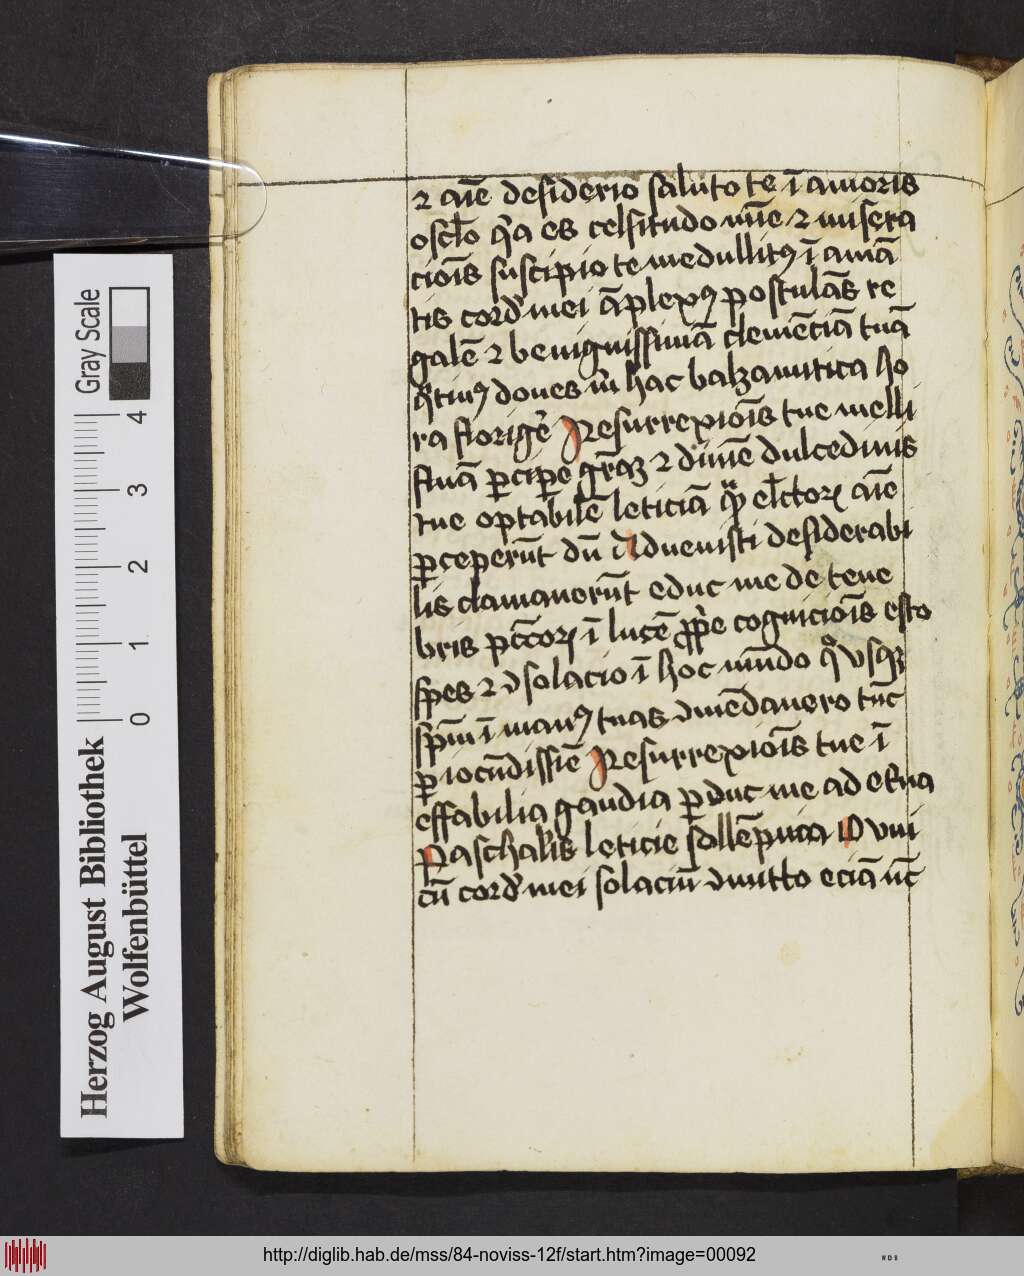 ⁊ aīe desiderio saluto te ī amoris
oscl̄o qͥa es celsitudo mīe ⁊ misera
cōis suscipio te medullitꝰ ī amā
tis cordꝭ mei āplexꝰ postulās re
galē ⁊ benignissimā clemēciā tuā
qͣtinꝰ dones m̄ hac balzamitica ho
ra florigeͬ Resurrexiōis tue melli
fluā ꝑciꝑe gr̄aȝ ⁊ diuīe dulcedinis
tue optabilē leticiā qͣꝫ el̄ctoꝝ aīe
ꝑceperūt dū Aduenisti desiderabi
lis clamauerūt educ me de tene
bris pct̄oꝝ ī lucē ꝓpͥe cognicōis esto
spes ⁊ ↄsolacio ī hoc mūdo qͦusqꝫ
sp̄m ī manꝰ tuas ↄmēdauero tūc
ꝑ iocūdissīe Resurrexiōis tue ī
effabilia gaudia ꝑduc me ad et̄na
Paschal̄is leticie sollēpnia O vni
cū cordꝭ mei solaciū ↄmitto eciā nc̄
Gray Scale
4
3
2
1
0
Herzog August Bibliothek
Wolfenbüttel
http://diglib.hab.de/mss/84-noviss-12f/start.htm?image=00092